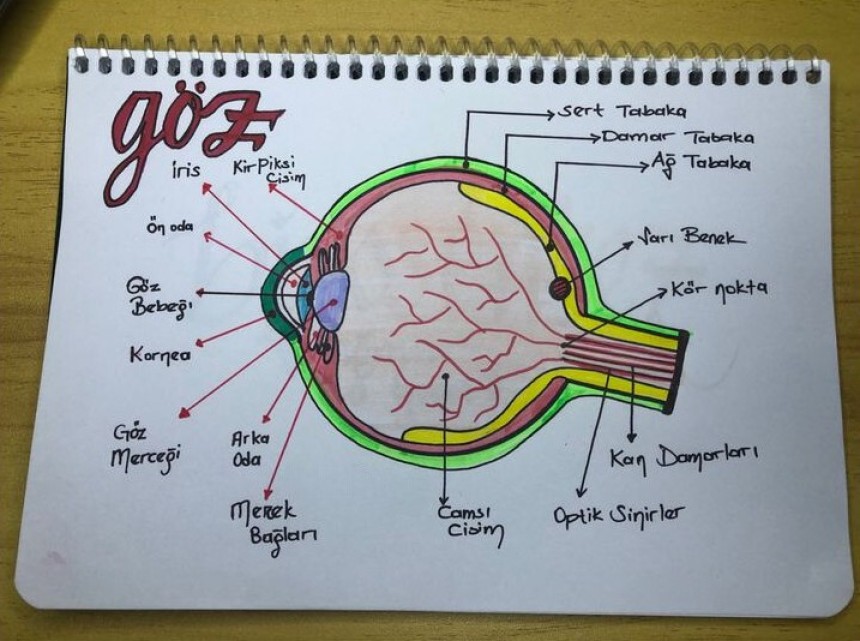 göz
İris
Kirpiksi
Cisim
Ön oda
Göz
Bebeği
Kornea
Göz
Merceği
Arka
Oda
Mercek
Bağları
Camsı
Cisim
Optik Sinirler
Kan Damarları
Kör nokta
Sarı Benek
Ağ Tabaka
Damar Tabaka
Sert Tabaka